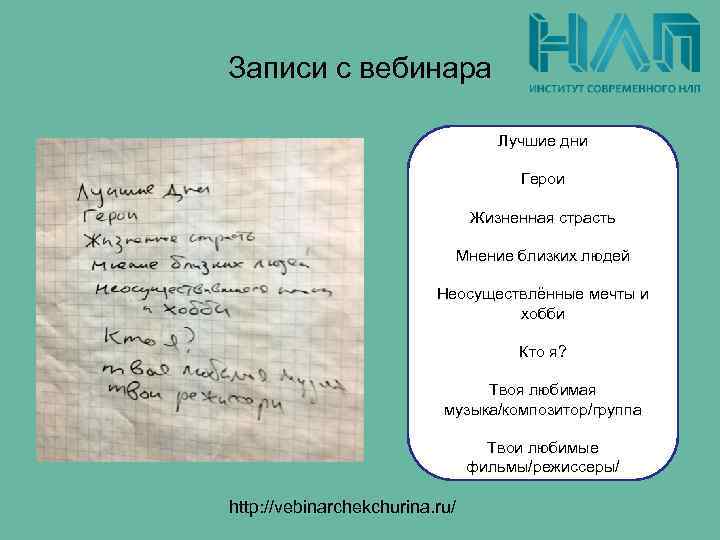 Записи с вебинара
НЛП
ИНСТИТУТ СОВРЕМЕННОГО НЛП
Лучшие дни
Герои
Жизненная страсть
Мнение близких людей
Неосуществлённые мечты и
хобби
Кто я?
Твоя любимая
музыка/композитор/группа
Твои любимые
фильмы/режиссеры/
Лучшие дни
Герои
Жизненная страсть
Мнение близких людей
и хобби
Кто я?
твоя любимая музыка
твои режиссеры
http: //vebinarchekchurina. ru/